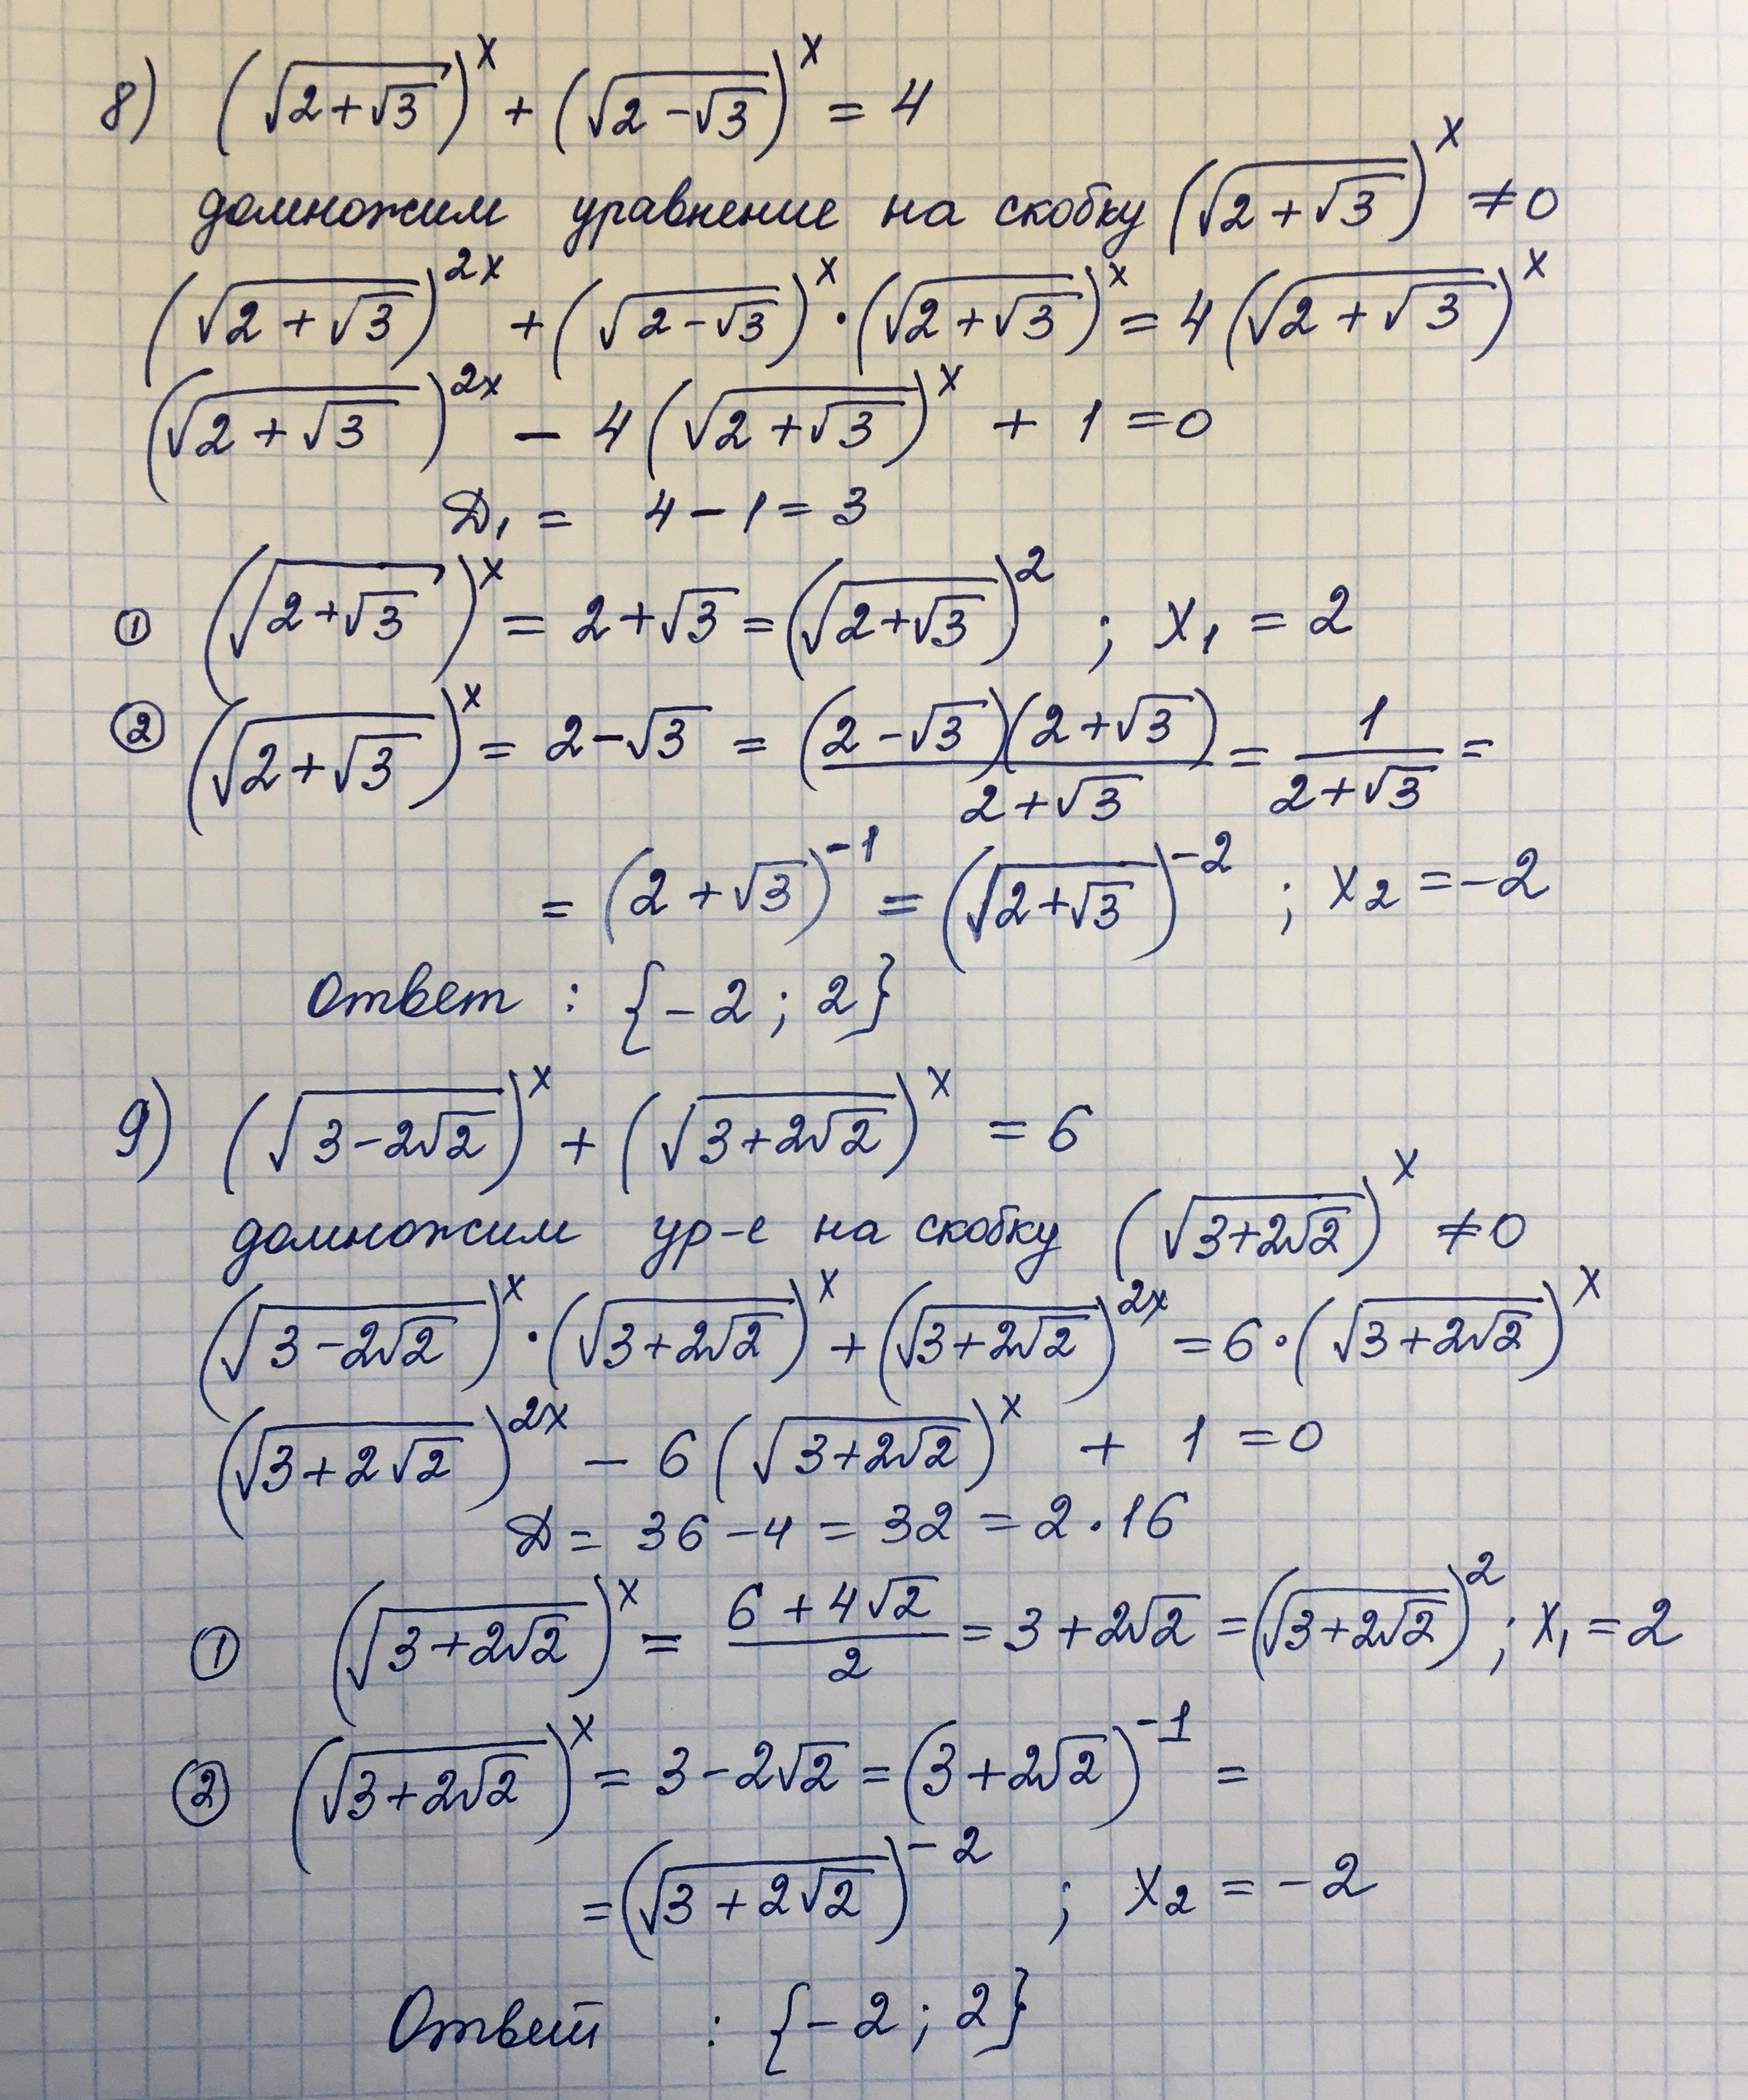 8) (√(2+√3))^x + (√(2-√3))^x = 4
домножим уравнение на скобку (√(2+√3))^x ≠0
(√(2+√3))^2x + (√(2-√3))^x · (√(2+√3))^x = 4(√(2+√3))^x
(√(2+√3))^2x - 4(√(2+√3))^x + 1 = 0
Д₁ = 4-1 = 3
① (√(2+√3))^x = 2+√3 = (√(2+√3))^2 ; x₁ = 2
② (√(2+√3))^x = 2-√3 = (2-√3)(2+√3)/(2+√3) = 1/(2+√3) =
= (2+√3)^-1 = (√(2+√3))^-2 ; x₂ = -2
Ответ : {-2 ; 2}
9) (√(3-2√2))^x + (√(3+2√2))^x = 6
домножим ур-е на скобку (√(3+2√2))^x ≠0
(√(3-2√2))^x · (√(3+2√2))^x + (√(3+2√2))^2x = 6·(√(3+2√2))^x
(√(3+2√2))^2x - 6(√(3+2√2))^x + 1 = 0
Д = 36-4 = 32 = 2·16
① (√(3+2√2))^x = (6+4√2)/2 = 3+2√2 = (√(3+2√2))^2 ; x₁ = 2
② (√(3+2√2))^x = 3-2√2 = (3+2√2)^-1 =
= (√(3+2√2))^-2 ; x₂ = -2
Ответ : {-2 ; 2}